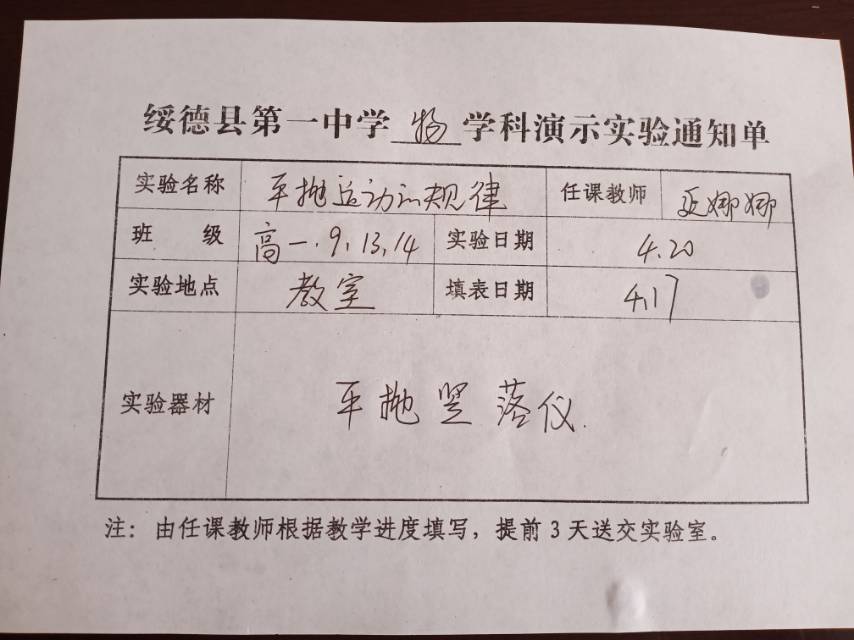 绥德县第一中学 物 学科演示实验通知单
实验名称 平抛运动的规律 任课教师 娜娜
班 级 高一.9,13,14 实验日期 4.20
实验地点 教室 填表日期 4.17
实验器材 平抛竖落仪.
注：由任课教师根据教学进度填写，提前3天送交实验室。